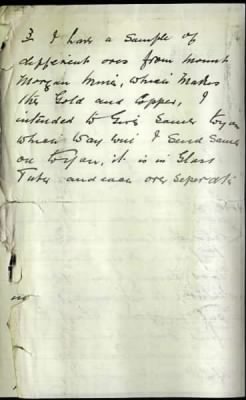 3 I have a Sample of
different ores from Mount
Morgan Mine, which Makes
the Gold and Copper, I
intended to Give Same to you
which Way will I Send Same
on to You, it is in Glass
Tubes and each over Seperate